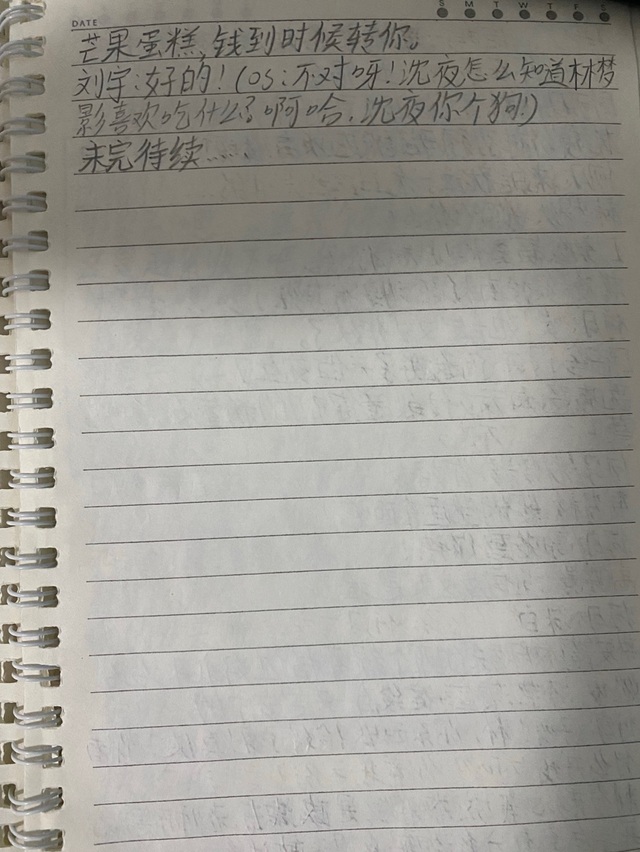 DATE
S M T W T F S
芒果蛋糕,钱到时候转你。
刘宇:好的!(os:不对呀!沈夜怎么知道林梦
影喜欢吃什么啊哈,沈夜你个狗!)
未完待续……